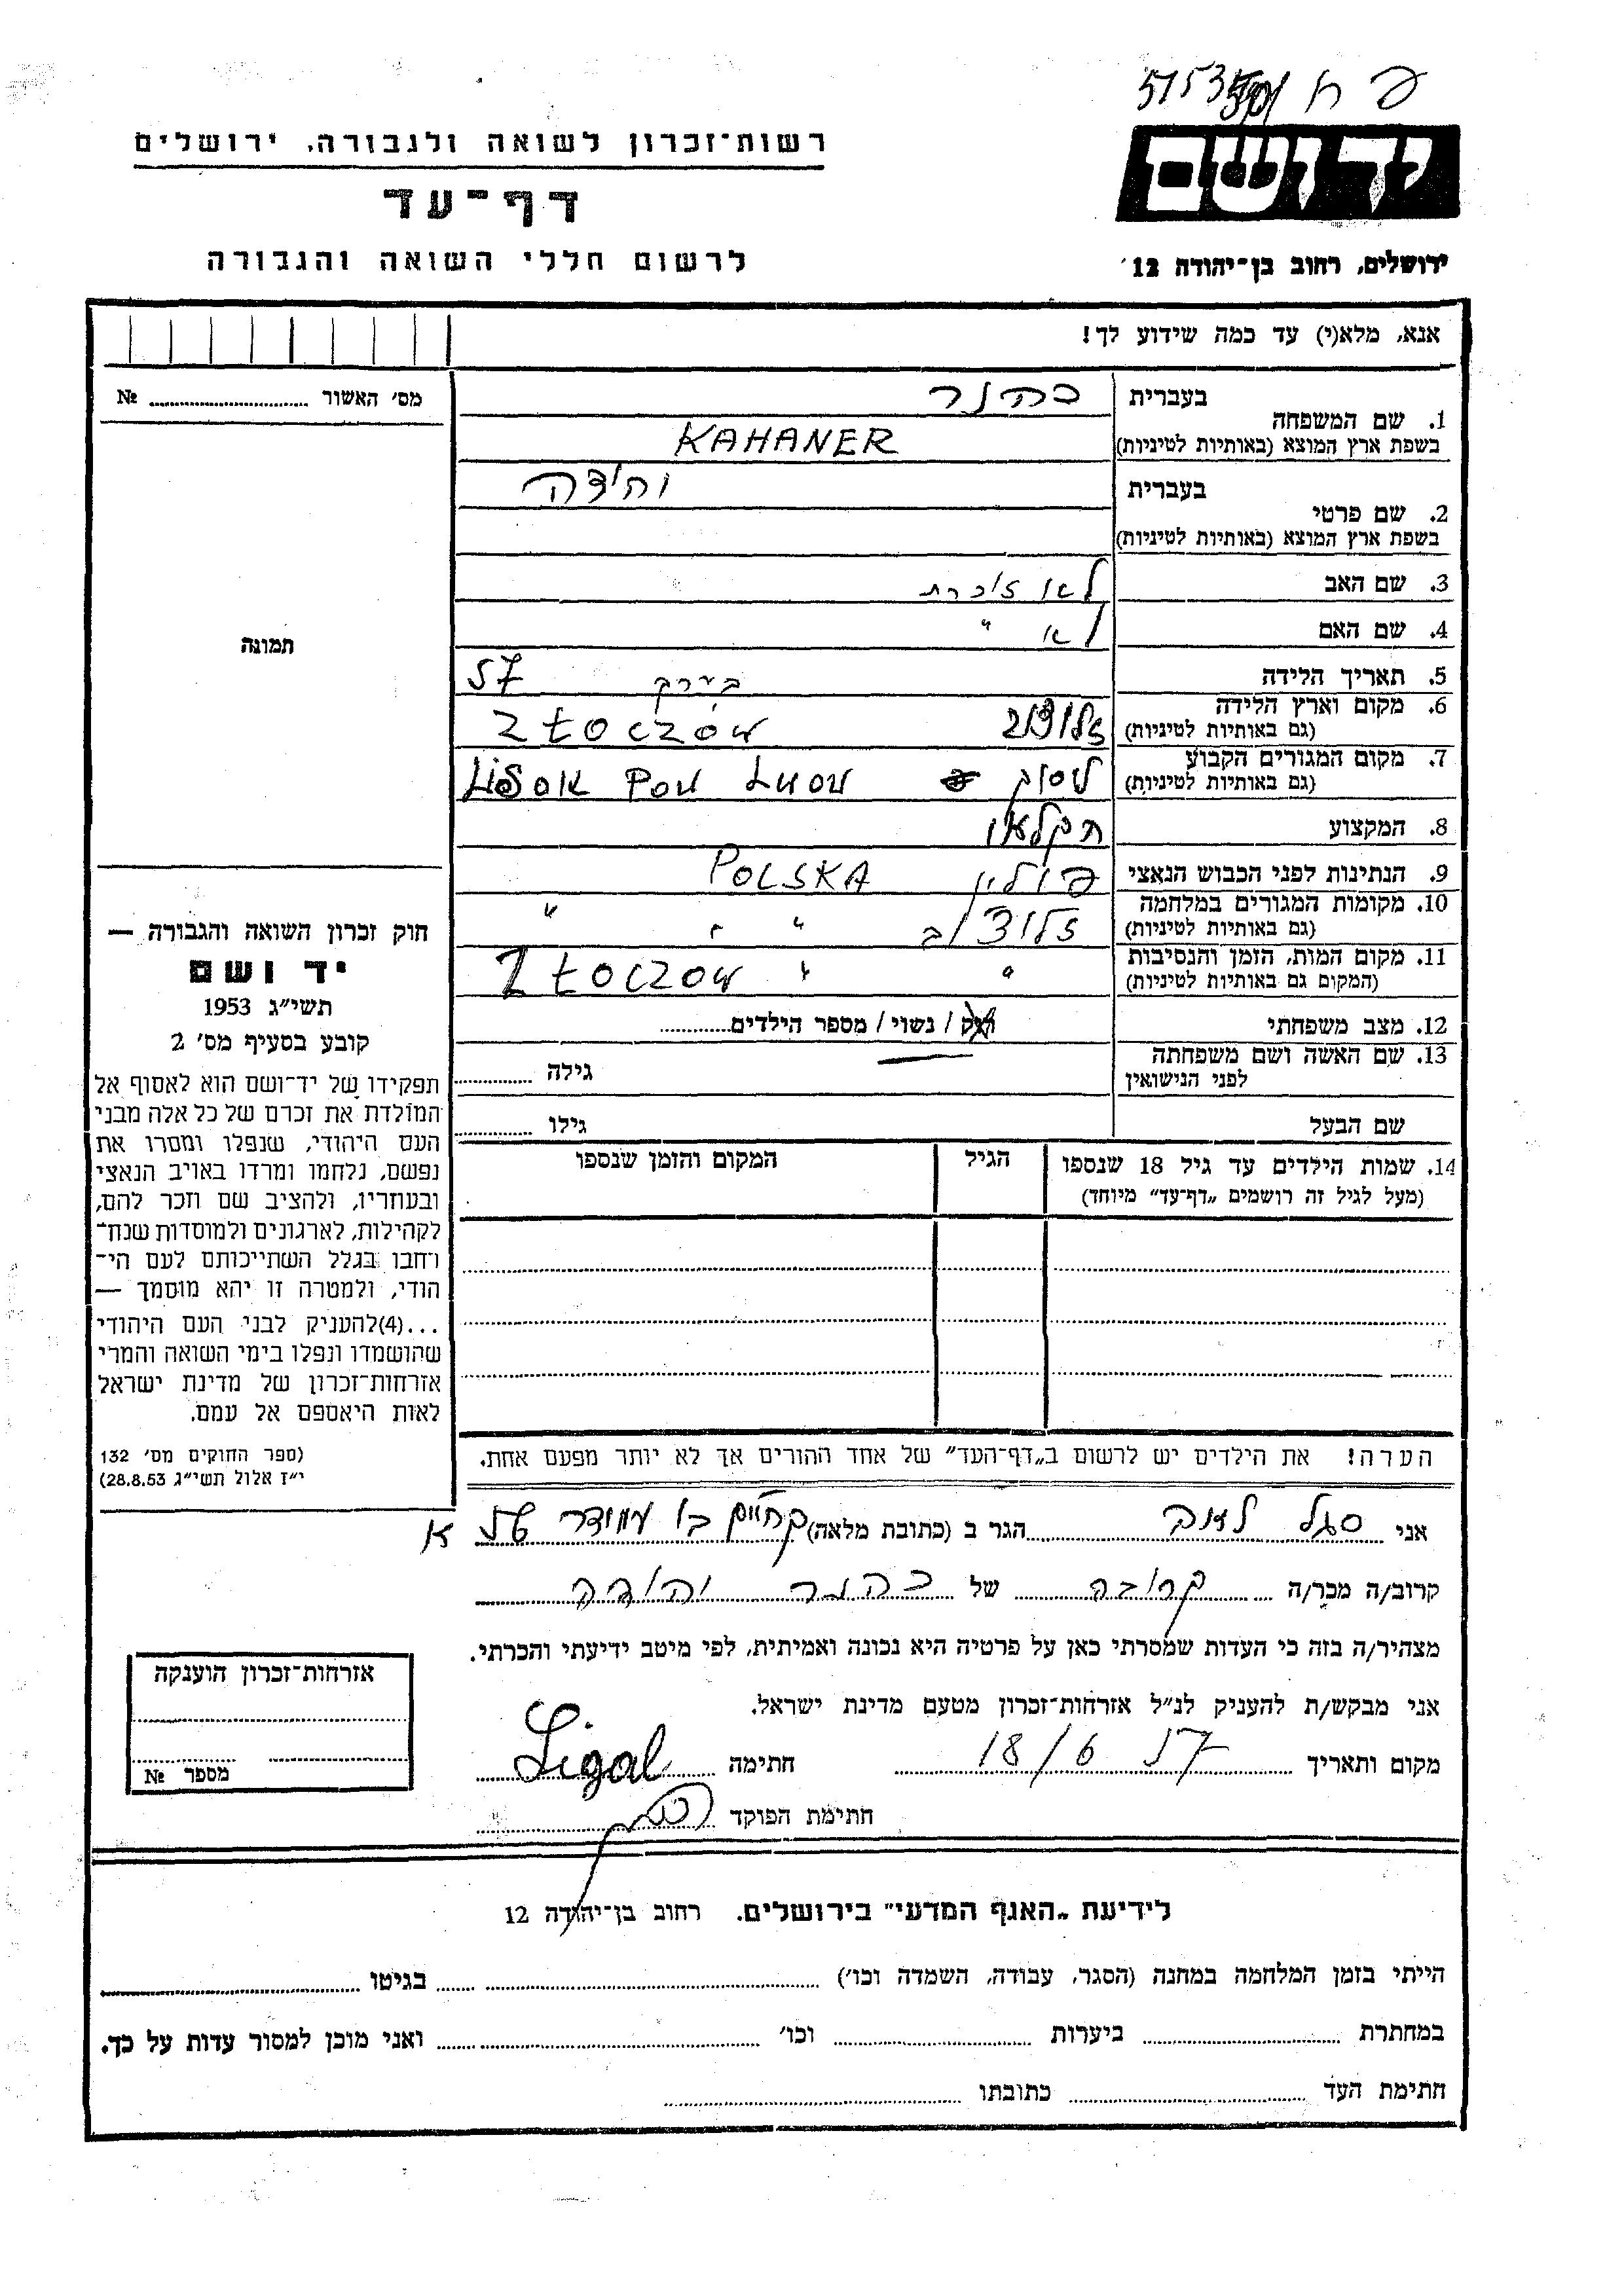 רשות־זכרון לשואה ולגבורה, ירושלים
דף־עד
לרשום חללי השואה והגבורה
יד ושם
ירושלים, רחוב בן־יהודה 12
אנא, מלא(י) עד כמה שידוע לך!
מס׳ האשור № 
1. שם המשפחה
בעברית כהנר
בשפת ארץ המוצא (באותיות לטיניות) KAHANER
2. שם פרטי
בעברית
בשפת ארץ המוצא (באותיות לטיניות)
3. שם האב לא זוכרת
4. שם האם לא "
5. תאריך הלידה בערך 57
6. מקום וארץ הלידה
(גם באותיות לטיניות) Złoczów
7. מקום המגורים הקבוע
(גם באותיות לטיניות) Pow Lwow
8. המקצוע חקלאי
9. הנתינות לפני הכבוש הנאצי פולין POLSKA
10. מקומות המגורים במלחמה
(גם באותיות לטיניות) " " "
11. מקום המות, הזמן והנסיבות
(המקום גם באותיות לטיניות) " " Złoczów
12. מצב משפחתי רוק / נשוי / מספר הילדים
13. שם האשה ושם משפחתה
לפני הנישואין גילה
שם הבעל גילו
14. שמות הילדים עד גיל 18 שנספו הגיל המקום והזמן שנספו
(מעל לגיל זה רושמים „דף־עד” מיוחד)
תמונה
חוק זכרון השואה והגבורה —
יד ושם
תשי״ג 1953
קובע בסעיף מס׳ 2
תפקידו של יד־ושם הוא לאסוף אל
המולדת את זכרם של כל אלה מבני
העם היהודי, שנפלו ומסרו את
נפשם, נלחמו ומרדו באויב הנאצי
ובעוזריו, ולהציב שם וזכר להם,
לקהילות, לארגונים ולמוסדות שנח־
רחבו בגלל השתייכותם לעם הי־
הודי, ולמטרה זו יהא מוסמך —
...(4)להעניק לבני העם היהודי
שהושמדו ונפלו בימי השואה והמרי
אזרחות־זכרון של מדינת ישראל
לאות היאספם אל עמם.
(ספר החוקים מס׳ 132
י״ז אלול תשי״ג 28.8.53)
הערה! את הילדים יש לרשום ב„דף־העד” של אחד ההורים אך לא יותר מפעם אחת.
אני סגל הגר ב (כתובת מלאה)
קרוב/ה מכר/ה קרובה של כהנר יהודה
מצהיר/ה בזה כי העדות שמסרתי כאן על פרטיה היא נכונה ואמיתית, לפי מיטב ידיעתי והכרתי.
אני מבקש/ת להעניק לנ״ל אזרחות־זכרון מטעם מדינת ישראל.
מקום ותאריך 18/6 57 חתימה
חתימת הפוקד
אזרחות־זכרון הוענקה
מספר №
לידיעת „האגף המדעי” בירושלים. רחוב בן־יהודה 12
הייתי בזמן המלחמה במחנה (הסגר, עבודה, השמדה וכו׳) בגיטו
במחתרת ביערות וכו׳ ואני מוכן למסור עדות על כך.
חתימת העד כתובתו